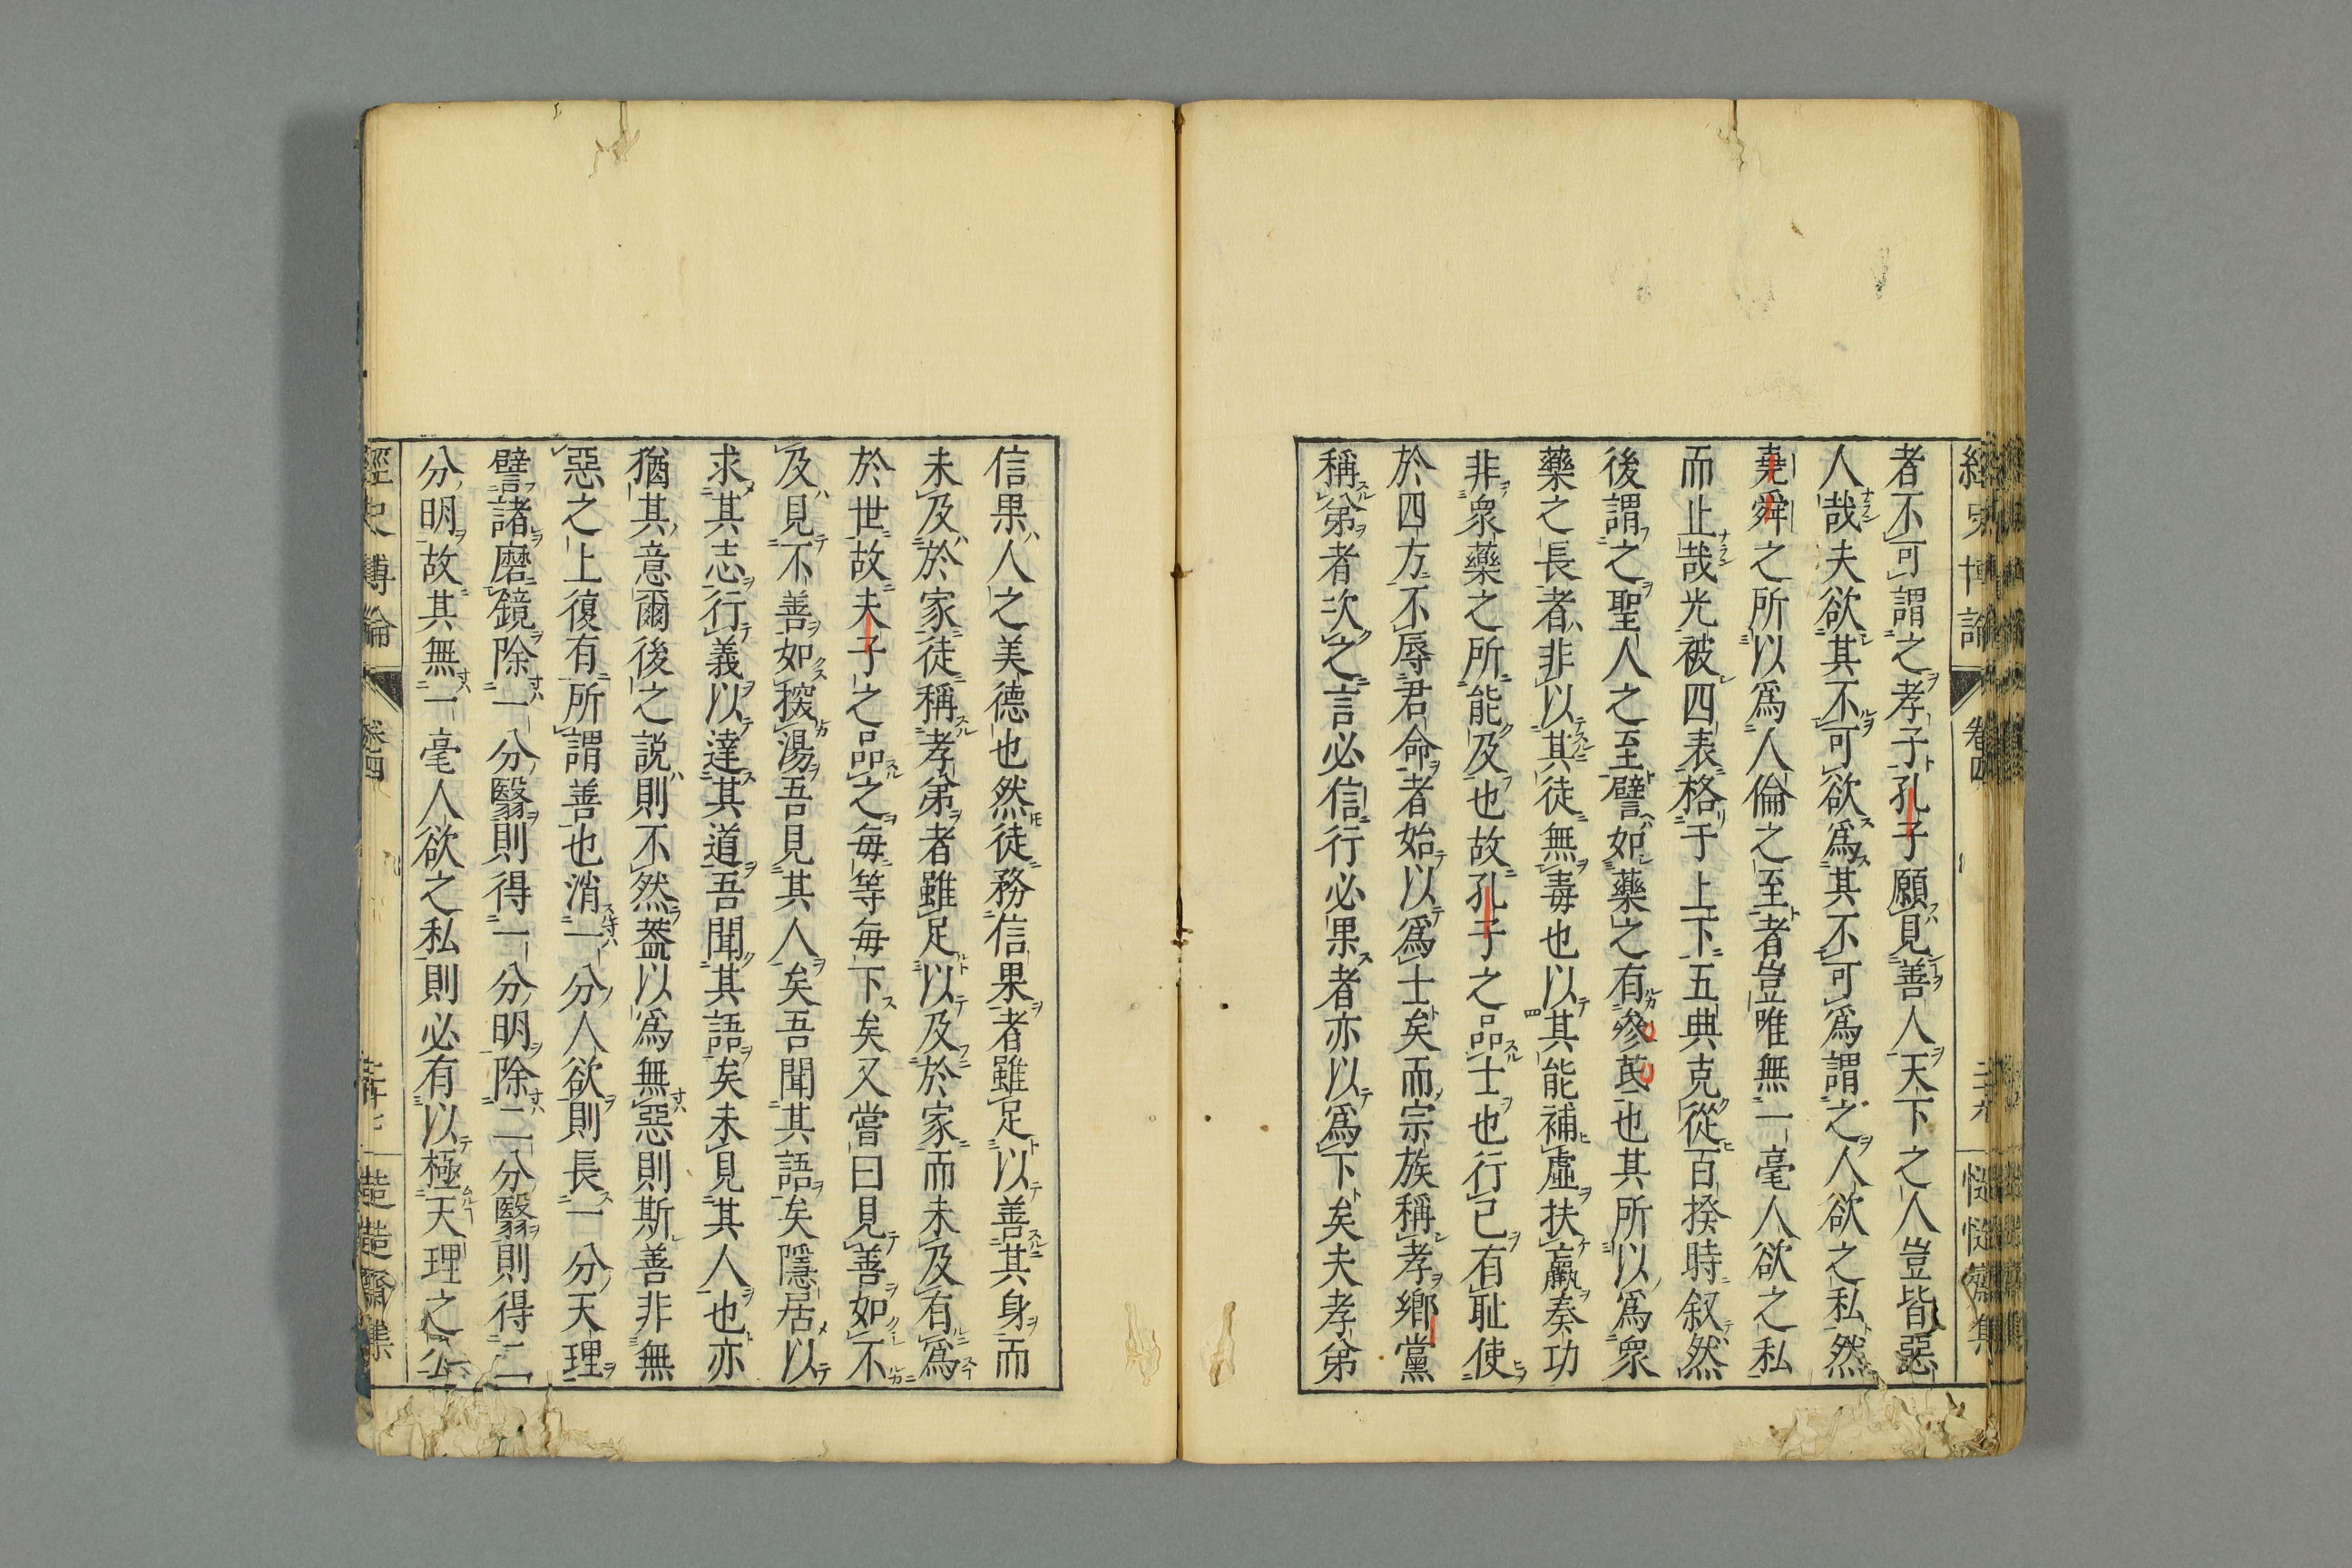 經史博論 卷四
者不可謂之孝子孔子願見善人天下之人豈皆惡
人哉夫欲其不可欲爲其不可爲謂之人欲之私然
堯舜之所以爲人倫之至者豈唯無一毫人欲之私
而止哉光被四表格于上下五典克從百揆時叙然
後謂之聖人之至譬如藥之有參茋也其所以爲衆
藥之長者非以其徒無毒也以其能補虛扶羸奏功
非衆藥之所能及也故孔子之品士也行己有耻使
於四方不辱君命者始以爲士矣而宗族稱孝鄉黨
稱弟者次之言必信行必果者亦以爲下矣夫孝弟
信果人之美德也然徒務信果者雖足以善其身而
未及於家徒稱孝弟者雖足以及於家而未及有爲
於世故夫子之品之每等每下矣又嘗曰見善如不
及見不善如探湯吾見其人矣吾聞其語矣隱居以
求其志行義以達其道吾聞其語矣未見其人也亦
猶其意爾後之說則不然蓋以爲無惡則斯善非無
惡之上復有所謂善也消一分人欲則長一分天理
譬諸磨鏡除一分翳則得一分明除二分翳則得二
分明故其無一毫人欲之私則必有以極天理之公
經史博論 卷四